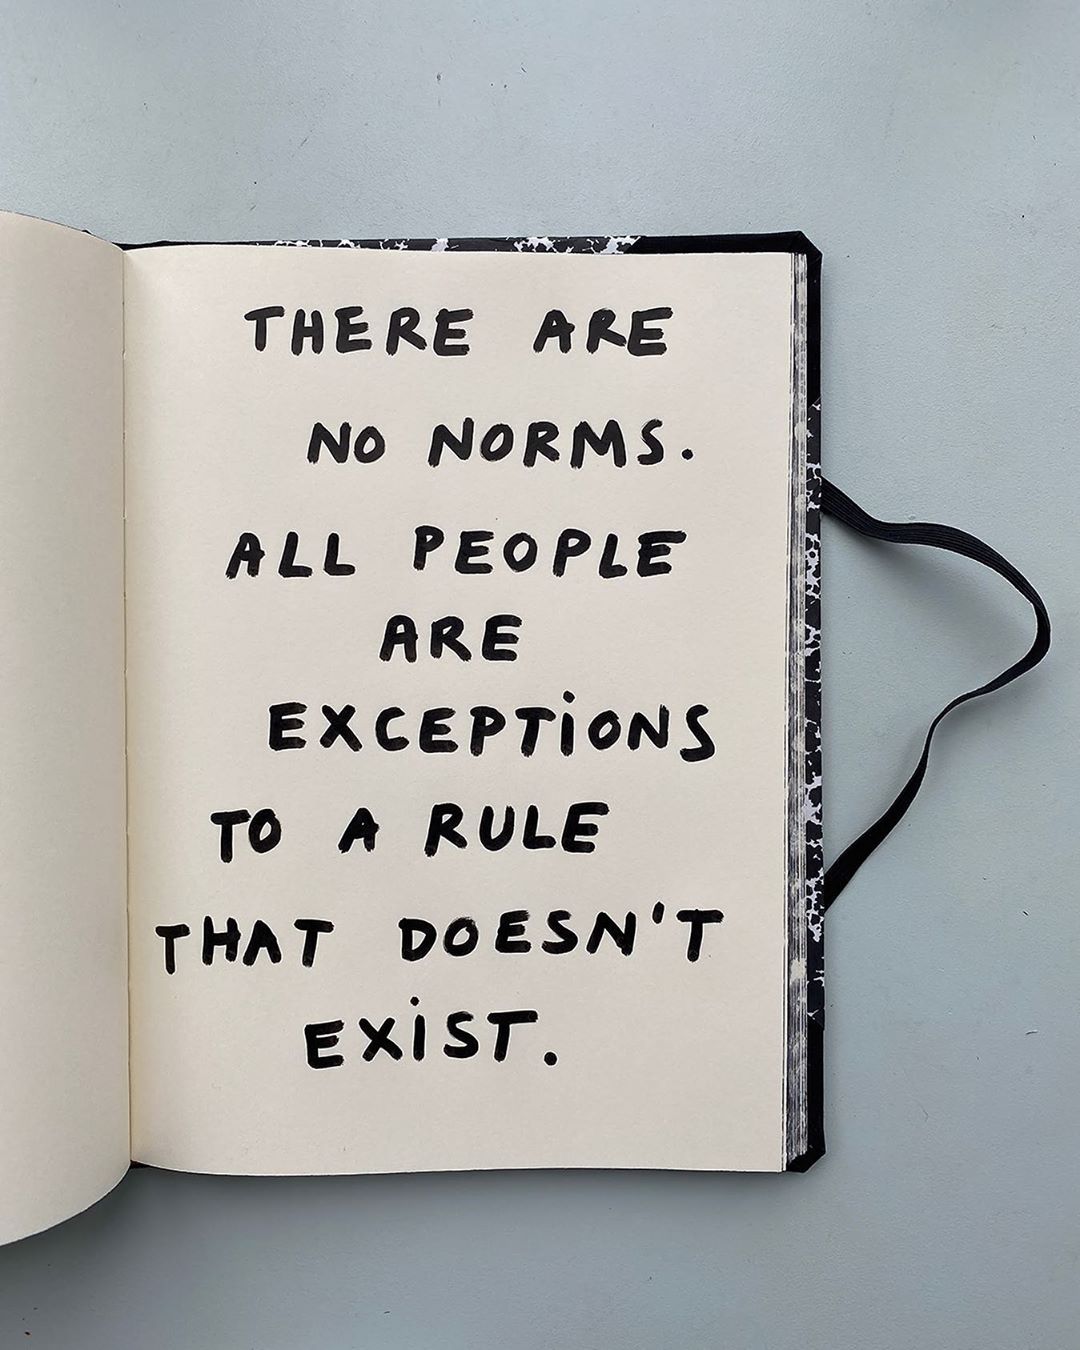 THERE ARE
NO NORMS.
ALL PEOPLE
ARE
EXCEPTIONS
TO A RULE
THAT DOESN'T
EXIST.